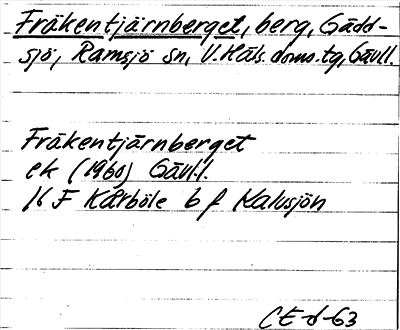 Fräkentjärnberget, berg, Gädd-
sjö, Ramsjö sn, V. Häls. doms.tg, Gävl.l.
Fräkentjärnberget
ek (1960) Gävl.l.
16 F Kårböle b f Nalusjön
CE-d-63